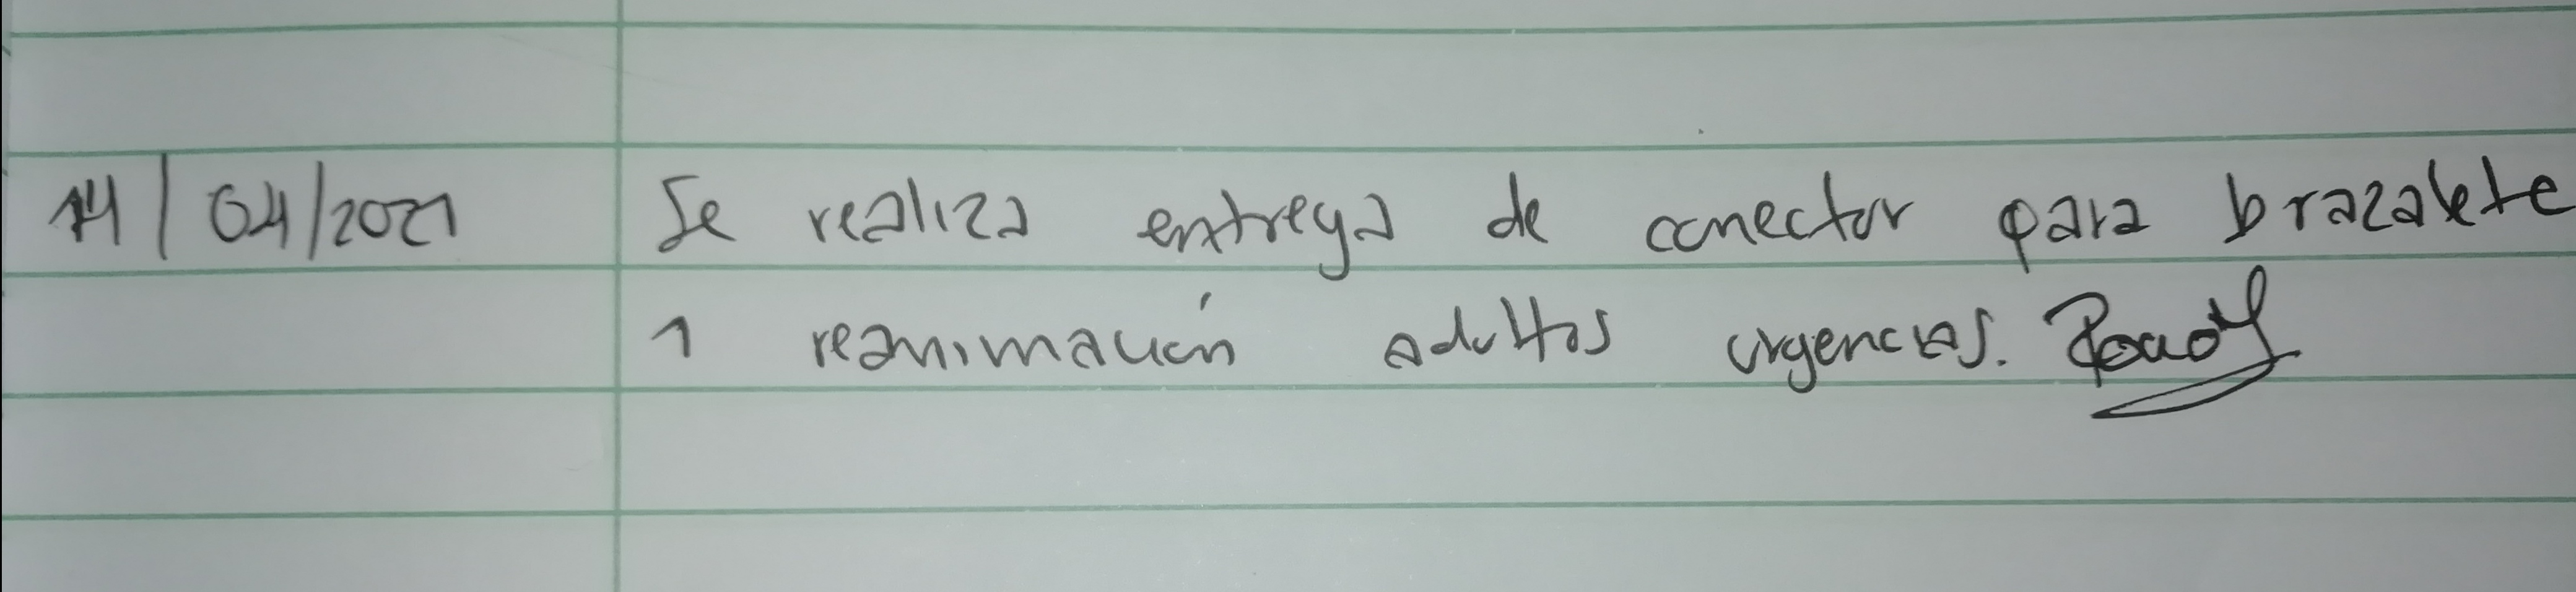 14/04/2021 Se realiza entrega de conector para brazalete
1 reanimación adultos urgencias.